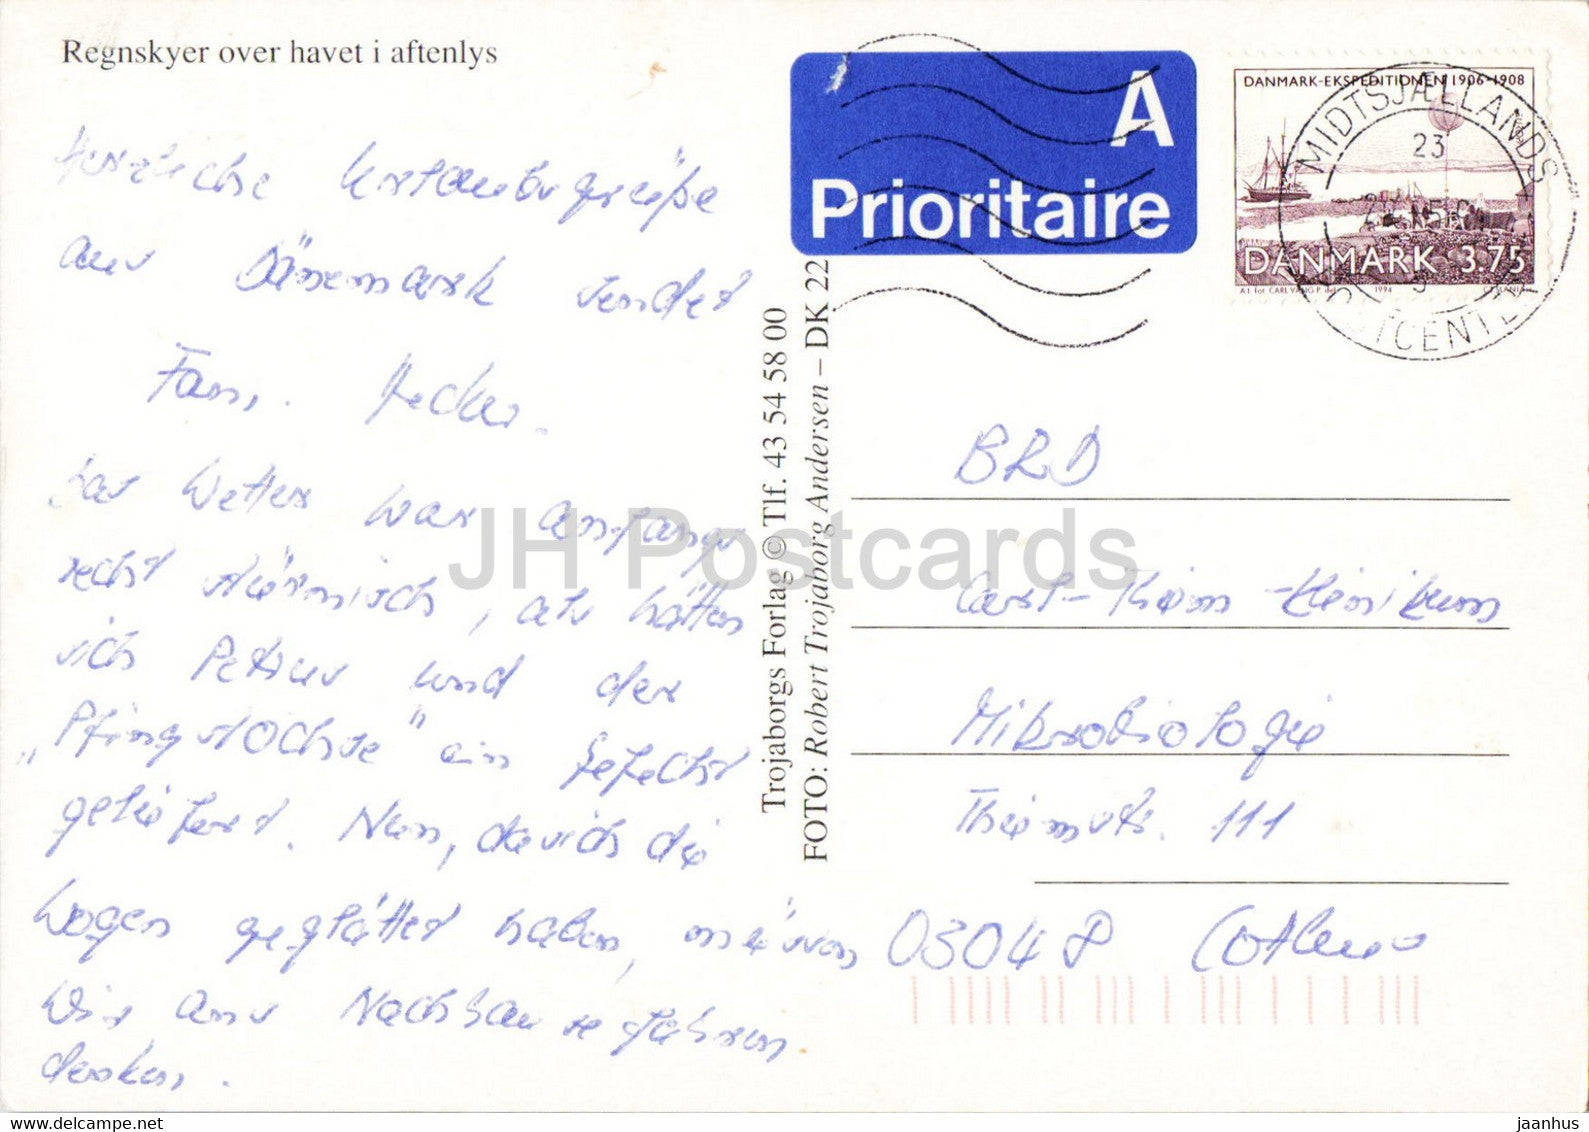 Regnskyer over havet i aftenlys
Herzliche Urlaubsgrüße
aus Dänemark sendet
Fam. Hecker.
Das Wetter war anfangs
recht stürmisch, als hätten
sich Petrus und der
„Pfingstochse" ein Gefecht
geliefert. Nun, da sich die
Wogen geglättet haben, müssen
wir ans Nachhausefahren
denken.
Trojaborgs Forlag © Tlf. 43 54 58 00
FOTO: Robert Trojaborg Andersen – DK 22
A
Prioritaire
DANMARK-EKSPEDITIONEN 1906-1908
DANMARK 3.75
1994
MIDTSJÆLLANDS
23
POSTCENTER
BRD
Carl-Thiem-Klinikum
Mikrobiologie
Thiemstr. 111
03048 Cottbus
JH Postcards
www.delcampe.net
jaanhus